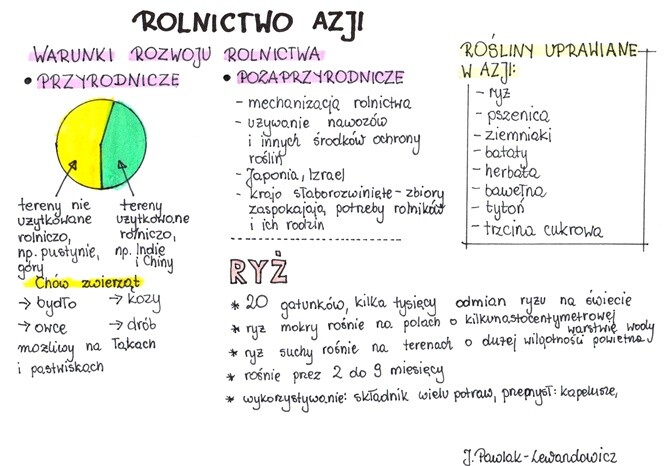 ROLNICTWO AZJI
WARUNKI ROZWOJU ROLNICTWA
• PRZYRODNICZE
tereny nie
użytkowane
rolniczo,
np. pustynie,
góry
tereny
użytkowane
rolniczo,
np. Indie
i Chiny
Chów zwierząt
→ bydło
→ kozy
→ owce
→ drób
możliwy na łąkach
i pastwiskach
• POZAPRZYRODNICZE
- mechanizacja rolnictwa
- używanie nawozów
i innych środków ochrony
roślin
- Japonia, Izrael
- kraje słaborozwinięte - zbiory
zaspokajają potrzeby rolników
i ich rodzin
ROŚLINY UPRAWIANE
W AZJI:
- ryż
- pszenica
- ziemniaki
- bataty
- herbata
- bawełna
- tytoń
- trzcina cukrowa
RYŻ
* 20 gatunków, kilka tysięcy odmian ryżu na świecie
* ryż mokry rośnie na polach o kilkunastocentymetrowej
warstwie wody
* ryż suchy rośnie na terenach o dużej wilgotności powietrza
* rośnie przez 2 do 9 miesięcy
* wykorzystywanie: składnik wielu potraw, przemysł: kapelusze,
J. Pawlak-Lewandowicz